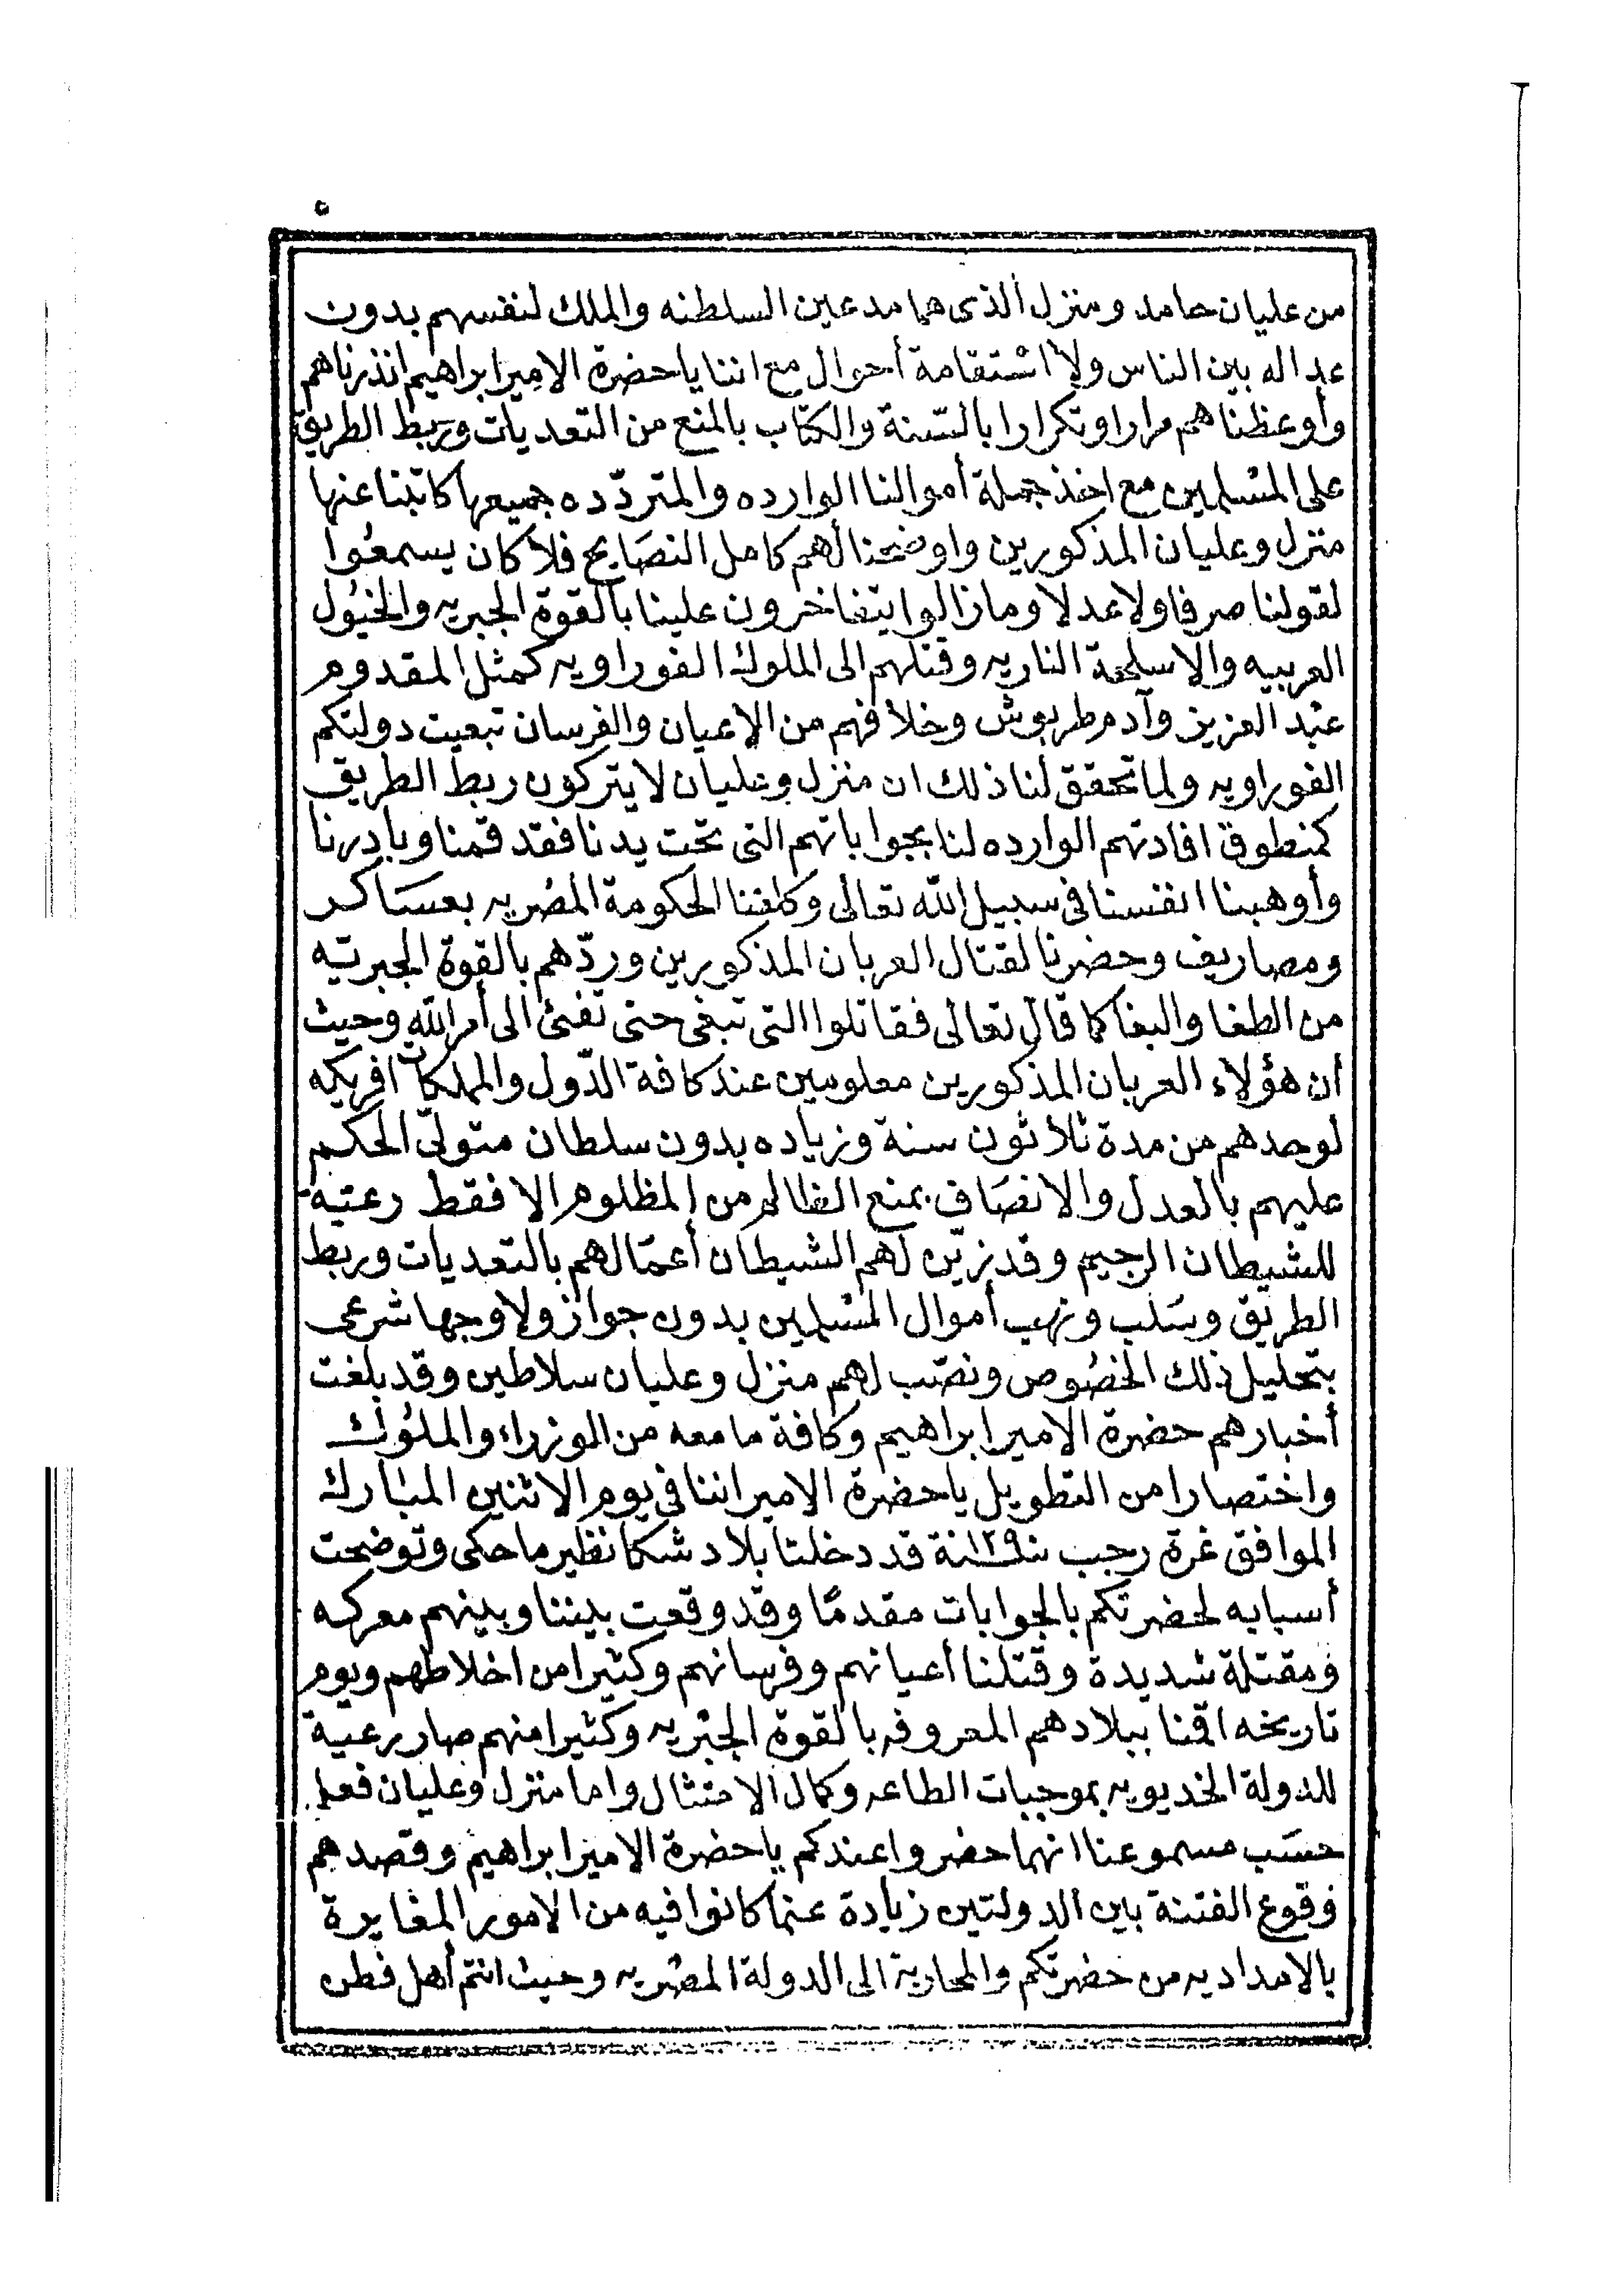 ٥
من عليان حامد ومنزل الذى هما مدعين السلطنه والملك لنفسهم بدون
عداله بين الناس ولا اشتقامة أحوال مع اننا يا حضرة الامير ابراهيم انذرناهم
وأوعظناهم مرارا وتكرارا بالسّنة والكتاب بالمنع من التعديات وربط الطريق
على المسلمين مع اخذ جملة أموالنا الوارده والمتردّده جميعها كاتبنا عنها
منزل وعليان المذكورين واوضحنا لهم كامل النصَايح فلا كان يسمعُوا
لقولنا صرفا ولا عدلا وما زالوا يتفاخرون علينا بالقوة الجبريه والخيُول
العربيه والاسلحة الناريه وقتلهم الى الملوك الفوراويه كمثل المقدوم
عبْد العزيز وآدم طربوش وخلافهم من الاعيان والفرسان تبعيت دولتكم
الفوراويه ولما تحقق لنا ذلك ان منزل وعليان لا يتركون ربط الطريق
كمنطوق افادتهم الوارده لنا بجواباتهم التى تحت يدنا فقد قمنا وبادرنا
وأوهبنا انفسنا فى سبيل الله تعالى وكلفنا الحكومة المصْريه بعسَاكر
ومصاريف وحضرنا لقتال العربان المذكورين وردّهم بالقوة الجبريّه
من الطغا والبغا كما قال تعالى فقاتلوا التى تبغى حتى تفئ الى أمر الله وحيث
أن هؤلاء العربان المذكورين معلومين عند كافة الدّول والمملكات افريكه
لوحدهم من مدة ثلاثون سنة وزياده بدون سلطان متولّى الحكم
عليهم بالعدل والانصَاف بمنع الظالم من المظلوم الا فقط رعيّة
للشيطان الرجيم وقد زيّن لهم الشيطان أعمَالهم بالتعديات وربط
الطريق وسَلب ونهب أموال المسْلمين بدون جواز ولا وجها شرعى
بتحليل ذلك الخصُوص ونصّب لهم منزل وعليان سلاطين وقد بلغت
أخبارهم حضرة الامير ابراهيم وكافة ما معه من الوزراء والملوُك
واختصارا من التطويل يا حضرة الامير اننا فى يوم الاثنين المبَارك
الموافق غرة رجب سنة ١٢٩٠ قد دخلنا بلاد شكا نظير ما حكى وتوضحت
أسبابه لحضرتكم بالجوابات مقدمًا وقد وقعت بيننا وبينهم معركه
ومقتلة شديدة وقتلنا أعيانهم وفرسانهم وكثيرا من اخلاطهم ويوم
تاريخه اقمنا ببلادهم المعروفه بالقوة الجبْريه وكثيرا منهم صار رعية
للدولة الخديويه بموجبات الطاعه وكمال الامتثال واما منزل وعليان فعلى
حسَب مسموعنا انهما حضروا عندكم يا حضرة الامير ابراهيم وقصدهم
وقوع الفتنة بين الدولتين زيادة عنما كانوا فيه من الامور المغايرة
بالامداديه من حضرتكم والمحاربة الى الدولة المصْريه وحيث انتم أهل فطن